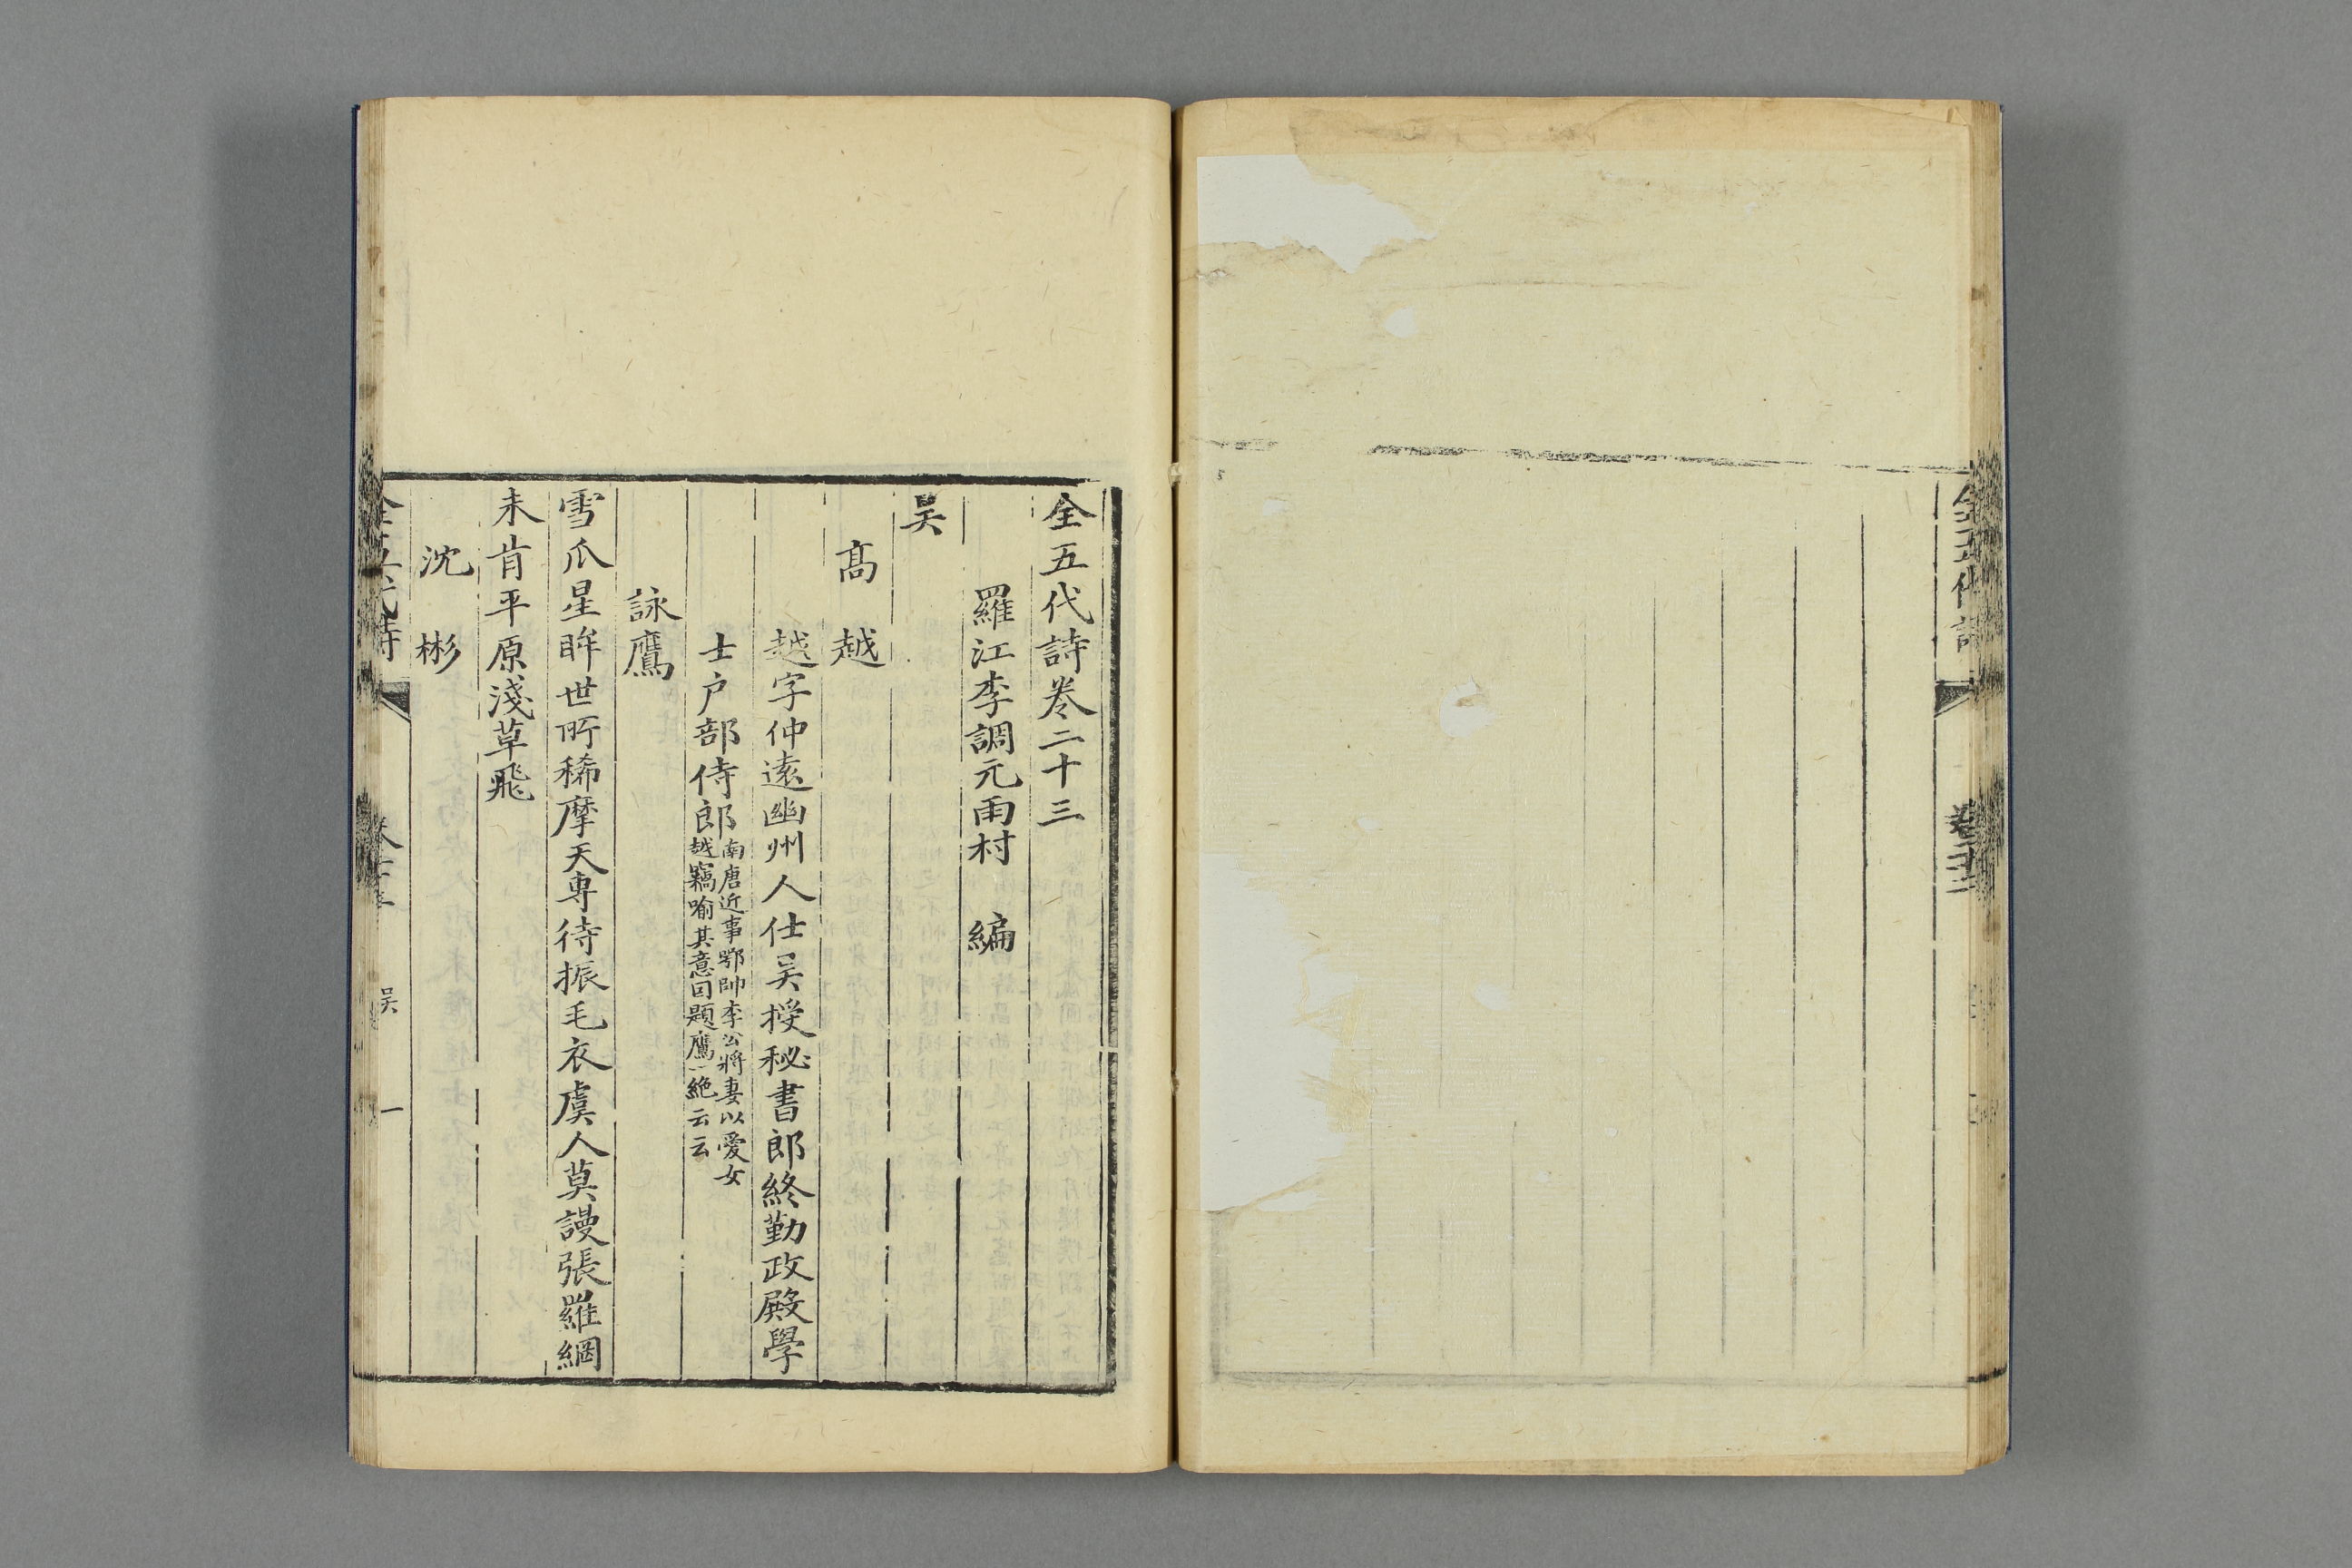 全五代詩卷二十三
羅江李調元雨村 編
吳
高 越
越字仲遠幽州人仕吳授秘書郎終勤政殿學
士戶部侍郎
南唐近事鄂帥李公將妻以愛女
越竊喻其意因題鷹一絶云云
詠鷹
雪爪星眸世所稀摩天專待振毛衣虞人莫謾張羅網
未肯平原淺草飛
沈 彬
全五代詩
吳
一